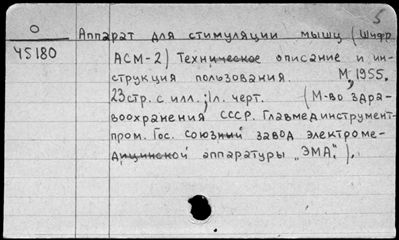 5
О Аппарат для стимуляции мышц (Шифр
45180 АСМ-2) Техническое описание и ин-
струкция пользования. М., 1955.
23 стр. с илл.; 1л. черт. (М-во здра-
воохранения СССР. Главмединструмент-
пром. Гос. союзный завод электроме-
дицинской аппаратуры „ЭМА").